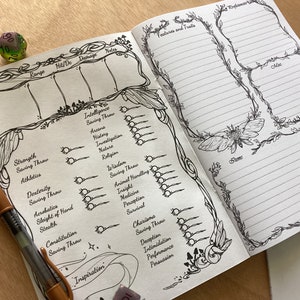 Range Hit/Dc Damage Notes
Strength
Saving Throw
Athletics
Dexterity
Saving Throw
Acrobatics
Sleight of Hand
Stealth
Constitution
Saving Throw
Inspiration
Intelligence
Saving Throw
Arcana
History
Investigation
Nature
Religion
Wisdom
Saving Throw
Animal Handling
Insight
Medicine
Perception
Survival
Charisma
Saving Throw
Deception
Intimidation
Performance
Persuasion
Features and Traits